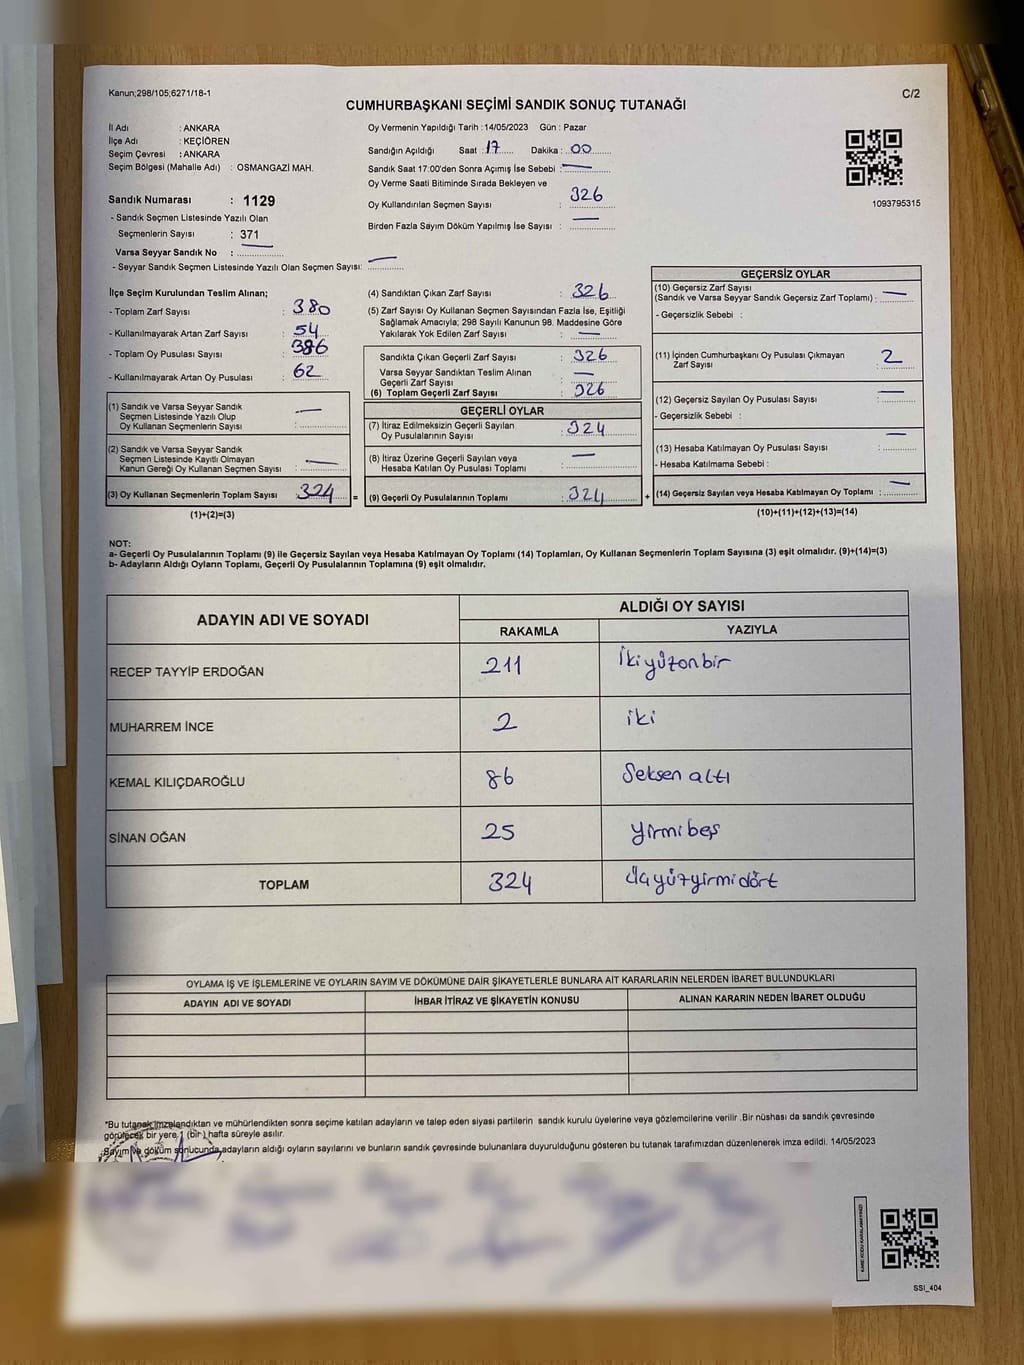 Kanun;298/105;6271/18-1
C/2
CUMHURBAŞKANI SEÇİMİ SANDIK SONUÇ TUTANAĞI
İl Adı : ANKARA
İlçe Adı : KEÇİÖREN
Seçim Çevresi : ANKARA
Seçim Bölgesi (Mahalle Adı) : OSMANGAZİ MAH.
Sandık Numarası : 1129
- Sandık Seçmen Listesinde Yazılı Olan
Seçmenlerin Sayısı : 371
Varsa Seyyar Sandık No :
- Seyyar Sandık Seçmen Listesinde Yazılı Olan Seçmen Sayısı:
Oy Vermenin Yapıldığı Tarih :14/05/2023 Gün : Pazar
Sandığın Açıldığı Saat : 17 Dakika : 00
Sandık Saat 17:00'den Sonra Açımış İse Sebebi :
Oy Verme Saati Bitiminde Sırada Bekleyen ve
Oy Kullandırılan Seçmen Sayısı : 326
Birden Fazla Sayım Döküm Yapılmış İse Sayısı :
1093795315
İlçe Seçim Kurulundan Teslim Alınan;
- Toplam Zarf Sayısı : 380
- Kullanılmayarak Artan Zarf Sayısı : 54
- Toplam Oy Pusulası Sayısı : 386
- Kullanılmayarak Artan Oy Pusulası : 62
(1) Sandık ve Varsa Seyyar Sandık
Seçmen Listesinde Yazılı Olup
Oy Kullanan Seçmenlerin Sayısı :
(2) Sandık ve Varsa Seyyar Sandık
Seçmen Listesinde Kayıtlı Olmayan
Kanun Gereği Oy Kullanan Seçmen Sayısı :
(3) Oy Kullanan Seçmenlerin Toplam Sayısı : 324
(1)+(2)=(3)
(4) Sandıktan Çıkan Zarf Sayısı : 326
(5) Zarf Sayısı Oy Kullanan Seçmen Sayısından Fazla İse, Eşitliği
Sağlamak Amacıyla; 298 Sayılı Kanunun 98. Maddesine Göre
Yakılarak Yok Edilen Zarf Sayısı :
Sandıkta Çıkan Geçerli Zarf Sayısı : 326
Varsa Seyyar Sandıktan Teslim Alınan
Geçerli Zarf Sayısı :
(6) Toplam Geçerli Zarf Sayısı : 326
GEÇERLİ OYLAR
(7) İtiraz Edilmeksizin Geçerli Sayılan
Oy Pusulalarının Sayısı : 324
(8) İtiraz Üzerine Geçerli Sayılan veya
Hesaba Katılan Oy Pusulası Toplamı :
= (9) Geçerli Oy Pusulalarının Toplamı : 324 +
GEÇERSİZ OYLAR
(10) Geçersiz Zarf Sayısı
(Sandık ve Varsa Seyyar Sandık Geçersiz Zarf Toplamı) :
- Geçersizlik Sebebi :
(11) İçinden Cumhurbaşkanı Oy Pusulası Çıkmayan
Zarf Sayısı : 2
(12) Geçersiz Sayılan Oy Pusulası Sayısı :
- Geçersizlik Sebebi :
(13) Hesaba Katılmayan Oy Pusulası Sayısı :
- Hesaba Katılmama Sebebi :
(14) Geçersiz Sayılan veya Hesaba Katılmayan Oy Toplamı :
(10)+(11)+(12)+(13)=(14)
NOT:
a- Geçerli Oy Pusulalarının Toplamı (9) ile Geçersiz Sayılan veya Hesaba Katılmayan Oy Toplamı (14) Toplamları, Oy Kullanan Seçmenlerin Toplam Sayısına (3) eşit olmalıdır. (9)+(14)=(3)
b- Adayların Aldığı Oyların Toplamı, Geçerli Oy Pusulalarının Toplamına (9) eşit olmalıdır.
ADAYIN ADI VE SOYADI ALDIĞI OY SAYISI
RAKAMLA YAZIYLA
RECEP TAYYİP ERDOĞAN 211 İkiyüzonbir
MUHARREM İNCE 2 iki
KEMAL KILIÇDAROĞLU 86 Seksen altı
SİNAN OĞAN 25 yirmibeş
TOPLAM 324 üçyüzyirmidört
OYLAMA İŞ VE İŞLEMLERİNE VE OYLARIN SAYIM VE DÖKÜMÜNE DAİR ŞİKAYETLERLE BUNLARA AİT KARARLARIN NELERDEN İBARET BULUNDUKLARI
ADAYIN ADI VE SOYADI İHBAR İTİRAZ VE ŞİKAYETİN KONUSU ALINAN KARARIN NEDEN İBARET OLDUĞU
*Bu tutanak imzalandıktan ve mühürlendikten sonra seçime katılan adayların ve talep eden siyasi partilerin sandık kurulu üyelerine veya gözlemcilerine verilir .Bir nüshası da sandık çevresinde
görülecek bir yere 1 (bir) hafta süreyle asılır.
Sayım ve döküm sonucunda adayların aldığı oyların sayılarını ve bunların sandık çevresinde bulunanlara duyurulduğunu gösteren bu tutanak tarafımızdan düzenlenerek imza edildi. 14/05/2023
SSI_404